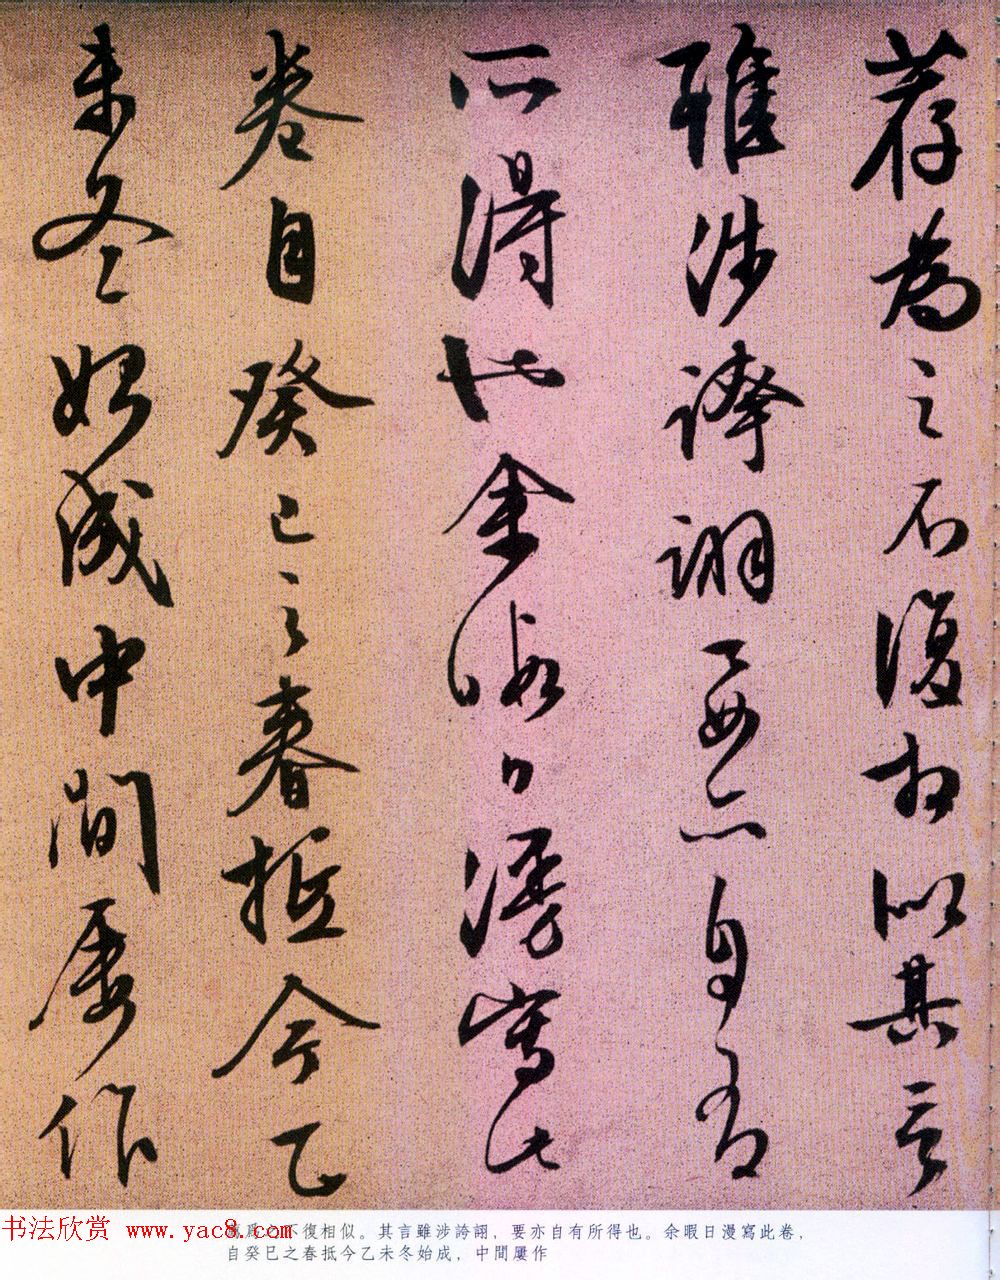 荐為之不復相似其言
雖涉誇詡要亦自有
所得也余暇日漫寫此
卷自癸巳之春抵今乙
未冬始成中間屢作
為之不復相似。其言雖涉誇詡，要亦自有所得也。余暇日漫寫此卷，
自癸巳之春抵今乙未冬始成，中間屢作
书法欣赏 www.yac8.com